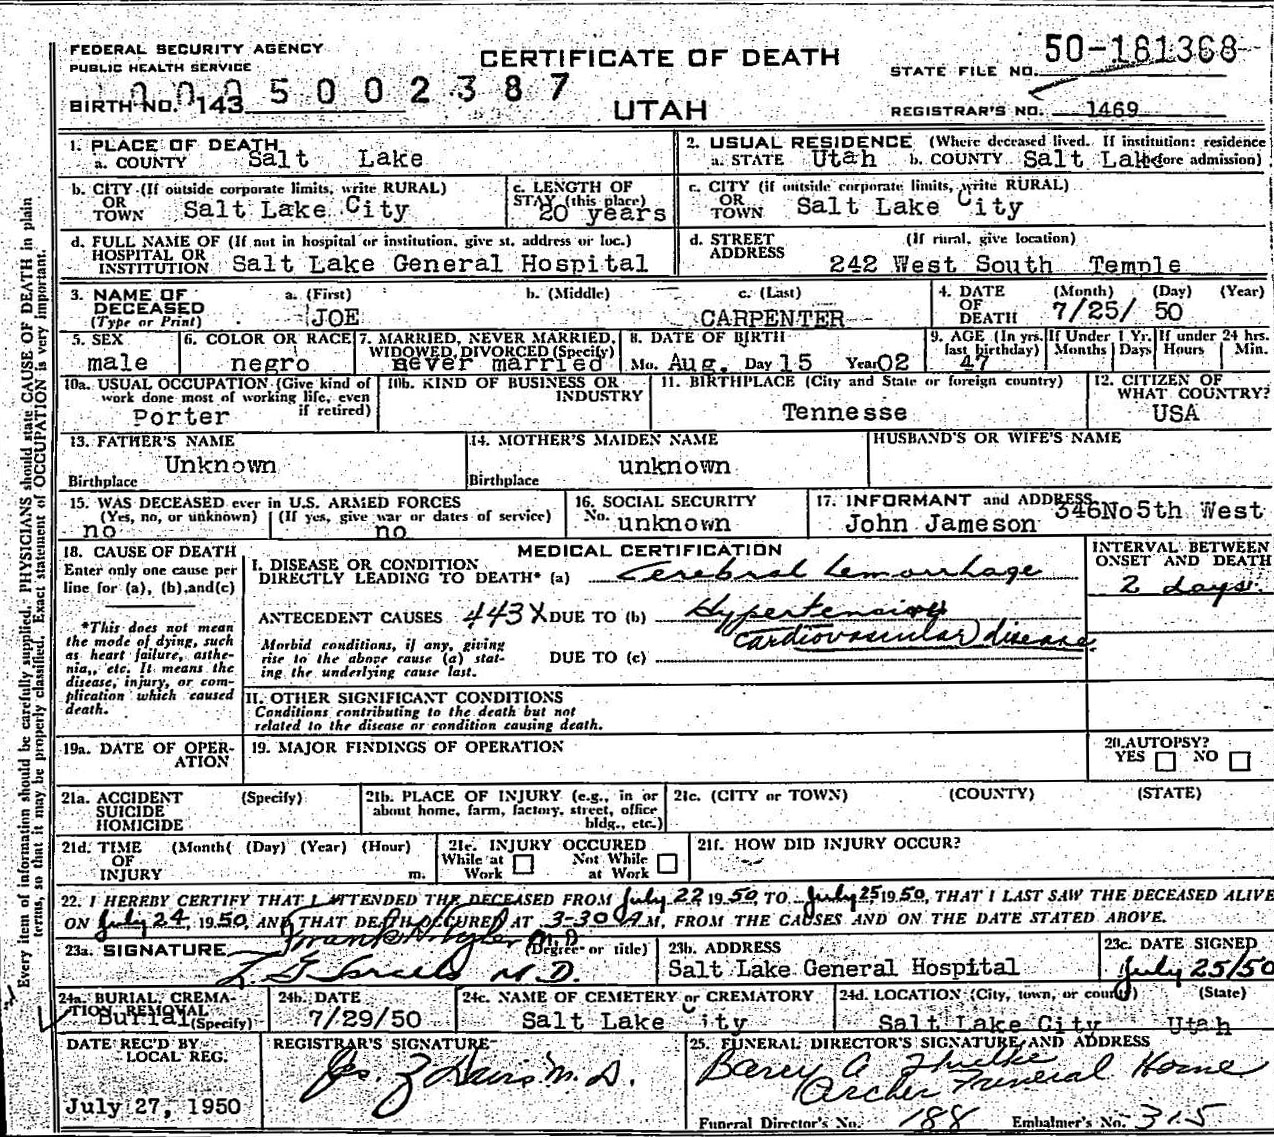 FEDERAL SECURITY AGENCY
PUBLIC HEALTH SERVICE
CERTIFICATE OF DEATH
UTAH
STATE FILE NO. 50-181368
BIRTH NO. 143
005002387
REGISTRAR'S NO. 1469
1. PLACE OF DEATH
a. COUNTY Salt Lake
2. USUAL RESIDENCE (Where deceased lived. If institution: residence before admission)
a. STATE Utah b. COUNTY Salt Lake
b. CITY (If outside corporate limits, write RURAL)
OR
TOWN Salt Lake City
c. LENGTH OF
STAY (this place)
20 years
c. CITY (if outside corporate limits, write RURAL)
OR
TOWN Salt Lake City
d. FULL NAME OF (If not in hospital or institution, give st. address or loc.)
HOSPITAL OR
INSTITUTION Salt Lake General Hospital
d. STREET (If rural, give location)
ADDRESS
242 West South Temple
3. NAME OF
DECEASED
(Type or Print)
a. (First) b. (Middle) c. (Last)
JOE CARPENTER
4. DATE (Month) (Day) (Year)
OF
DEATH 7/25/ 50
5. SEX
male
6. COLOR OR RACE
negro
7. MARRIED, NEVER MARRIED,
WIDOWED, DIVORCED (Specify)
never married
8. DATE OF BIRTH
Mo. Aug. Day 15 Year 02
9. AGE (In yrs.
last birthday)
47
If Under 1 Yr.
Months Days
If under 24 hrs.
Hours Min.
10a. USUAL OCCUPATION (Give kind of
work done most of working life, even
if retired)
Porter
10b. KIND OF BUSINESS OR
INDUSTRY
11. BIRTHPLACE (City and State or foreign country)
Tennesse
12. CITIZEN OF
WHAT COUNTRY?
USA
13. FATHER'S NAME
Unknown
Birthplace
14. MOTHER'S MAIDEN NAME
unknown
Birthplace
HUSBAND'S OR WIFE'S NAME
15. WAS DECEASED ever in U.S. ARMED FORCES
(Yes, no, or unknown) (If yes, give war or dates of service)
no no
16. SOCIAL SECURITY
No. unknown
17. INFORMANT and ADDRESS
John Jameson 346No5th West
18. CAUSE OF DEATH
Enter only one cause per
line for (a), (b),and(c)
*This does not mean
the mode of dying, such
as heart failure, asthe-
nia,, etc. It means the
disease, injury, or com-
plication which caused
death.
MEDICAL CERTIFICATION
I. DISEASE OR CONDITION
DIRECTLY LEADING TO DEATH* (a) Cerebral hemorrhage
ANTECEDENT CAUSES 443X DUE TO (b) Hypertensive
cardiovascular disease
Morbid conditions, if any, giving
rise to the above cause (a) stat-
ing the underlying cause last.
DUE TO (c)
INTERVAL BETWEEN
ONSET AND DEATH
2 days.
II. OTHER SIGNIFICANT CONDITIONS
Conditions contributing to the death but not
related to the disease or condition causing death.
19a. DATE OF OPER-
ATION
19. MAJOR FINDINGS OF OPERATION
20. AUTOPSY?
YES NO
21a. ACCIDENT (Specify)
SUICIDE
HOMICIDE
21b. PLACE OF INJURY (e.g., in or
about home, farm, factory, street, office
bldg., etc.)
21c. (CITY or TOWN) (COUNTY) (STATE)
21d. TIME (Month( (Day) (Year) (Hour)
OF
INJURY m.
21e. INJURY OCCURED
While at Work Not While at Work
21f. HOW DID INJURY OCCUR?
22. I HEREBY CERTIFY THAT I ATTENDED THE DECEASED FROM July 22 1950 TO July 25 1950, THAT I LAST SAW THE DECEASED ALIVE
ON July 24, 1950, AND THAT DEATH OCCURED AT 3-30 A M, FROM THE CAUSES AND ON THE DATE STATED ABOVE.
23a. SIGNATURE Frank M.D. (Degree or title)
M.D.
23b. ADDRESS
Salt Lake General Hospital
23c. DATE SIGNED
July 25/50
24a. BURIAL, CREMA-
TION REMOVAL
Burial (Specify)
24b. DATE
7/29/50
24c. NAME OF CEMETERY or CREMATORY
Salt Lake City
24d. LOCATION (City, town, or county) (State)
Salt Lake City Utah
DATE REC'D BY
LOCAL REG.
July 27, 1950
REGISTRAR'S SIGNATURE
M.D.
25. FUNERAL DIRECTOR'S SIGNATURE AND ADDRESS
Archer Funeral Home
Funeral Director's No. 188 Embalmer's No. 315
Every item of information should be carefully supplied. PHYSICIANS should state CAUSE OF DEATH in plain
terms, so that it may be properly classified. Exact statement of OCCUPATION is very important.